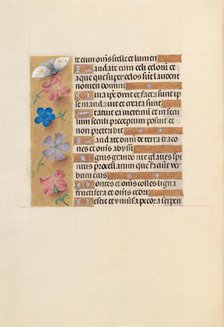 te eum omnes stelle et lumen
Laudate eum celi celorū et
aque que super celos sūt laudent
nomen domini
Quia ipē dixit et facta sunt ip
se mandauit et creata sunt
Statuit ea in eternū et in
seculum seculi preceptum posuit et
non preteribit
Laudate dominū de terra draco
nes et omēs abyssi
Ignis grando nix glacies spi
ritus procellarum que faciūt ver
bum eius
Montes et omēs colles ligna
fructifera et omēs cedri
Bestie et vniuersa pecora serpen